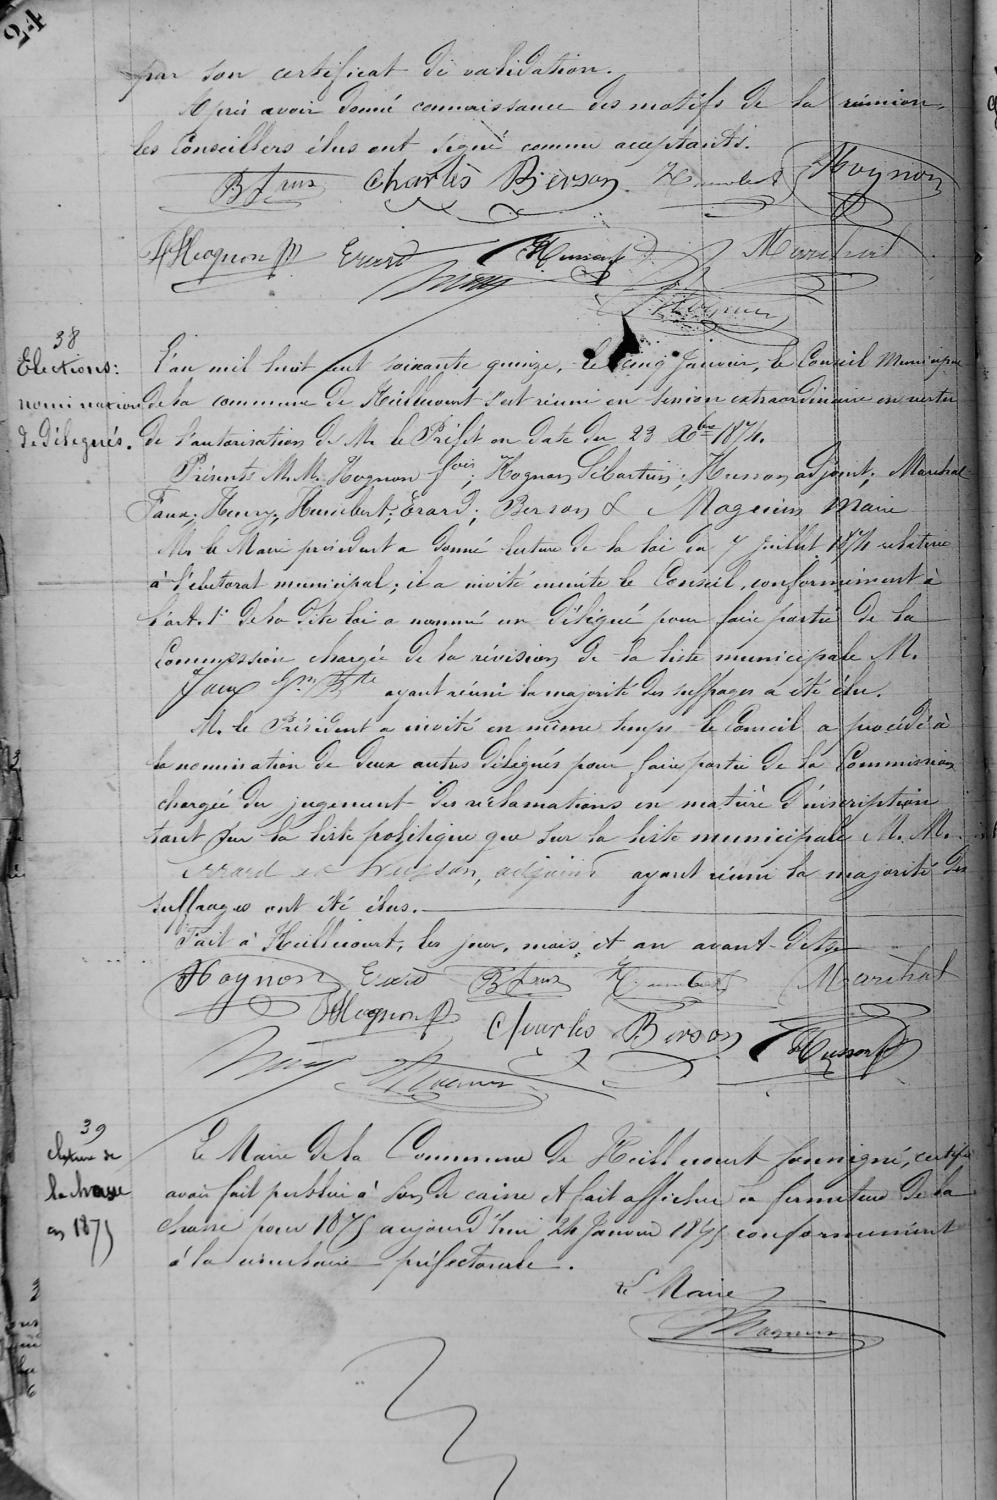 24
par son certificat de validation.
Après avoir donné connaissance des motifs de la réunion,
les Conseillers élus ont signé comme acceptants.
Charles Berson Humbert Hognon
Hognon Erard Husson Maréchal
38
Elections:
nomination
de délégués.
L'an mil huit cent soixante quinze, le cinq Janvier, le Conseil Municipal
de la commune de Heillecourt s'est réuni en session extraordinaire en vertu
de l'autorisation de M. le Préfet en date du 23 Xbre 1874.
Présents M.M. Hognon fois; Hognon Sébastien; Husson adjoint; Maréchal
Faux; Henry; Humbert; Erard; Berson & Magnien Maire
M. le Maire président a donné lecture de la loi du 7 Juillet 1874 relative
à l'électorat municipal; il a invité ensuite le Conseil, conformément à
l'art. 1er de la dite loi a nommé un délégué pour faire partie de la
Commission chargée de la révision de la liste municipale M.
Faux Jn Bte ayant réuni la majorité des suffrages a été élu.
M. le Président a invité en même temps le Conseil a procédé à
la nomination de deux autres délégués pour faire partie de la Commission
chargée du jugement des réclamations en matière d'inscription
tant sur la liste politique que sur la liste municipale M. M.
Errard et Husson, adjoint ayant réuni la majorité des
suffrages ont été élus.
Fait à Heillecourt, les jour, mois et an avant-dits
Hognon Erard Humbert Maréchal
Hognon Charles Berson Husson
Magnien
39
cloture de
la chasse
en 1875
Le Maire de la Commune de Heillecourt soussigné, certifie
avoir fait publier à son de caisse et fait afficher la fermeture de la
chasse pour 1875 aujourd'hui 24 Janvier 1875 conformément
à la circulaire préfectorale.
Le Maire
Magnien